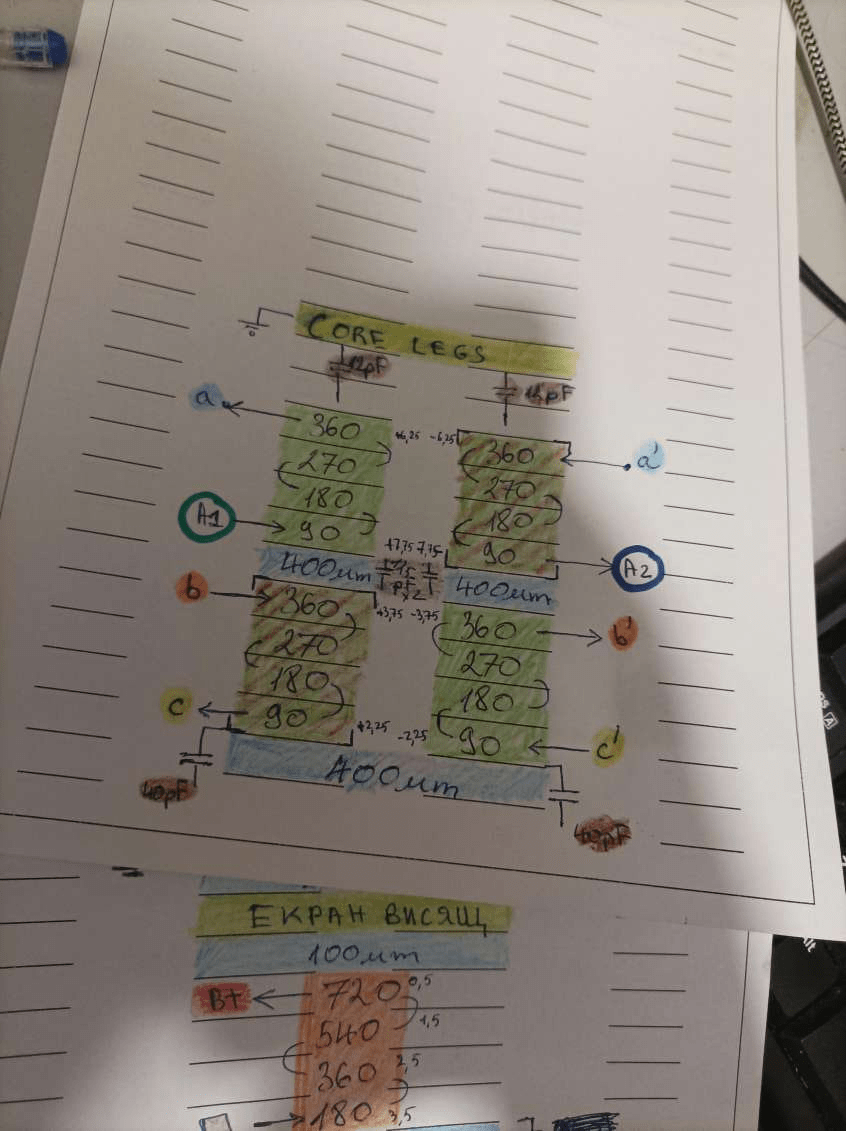 CORE LEGS
12pF
12pF
a
360
+6,25 -6,25
360
a'
270
270
180
180
A1
90
+7,75 7,75
90
A2
400μm
pF
x2
400μm
b
360
+3,75 -3,75
360
b'
270
270
180
180
c
90
+2,25 -2,25
90
c'
400μm
40pF
40pF
ЕКРАН ВИСЯЩ
100μm
B+
720
0,5
540
1,5
360
2,5
180
3,5